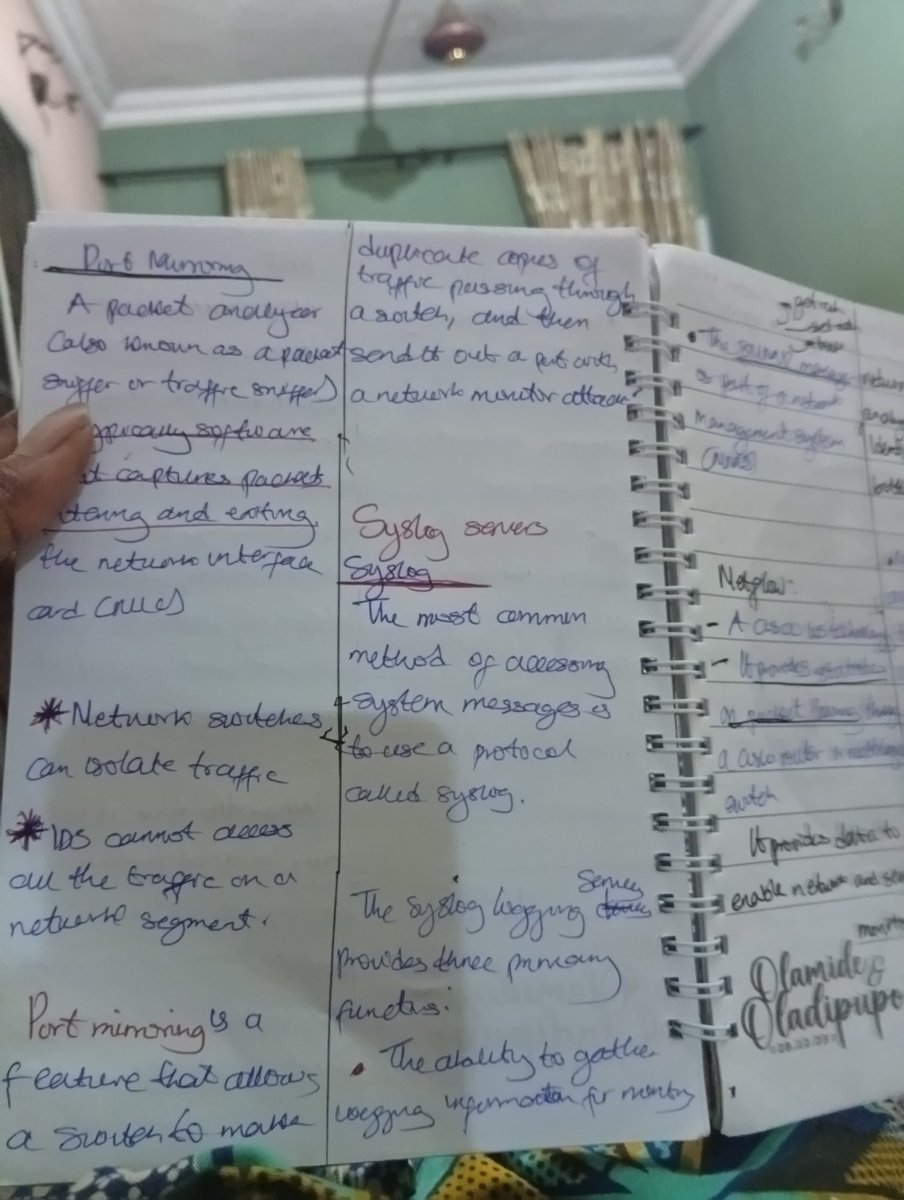 Port Mirroring
A packet analyzer
(also known as a packet
sniffer or traffic sniffer)
typically software
captures packets
and exiting
the network interface
card (NIC)
* Network switches
can isolate traffic
* IDS cannot access
all the traffic on a
network segment.
Port mirroring is a
feature that allows
a switch to make
duplicate copies of
traffic passing through
a switch, and then
send it out a port with
a network monitor
Syslog servers
Syslog
The most common
method of accessing
system messages is
to use a protocol
called syslog.
The syslog logging
provides three primary
• The ability to gather
logging information for
• The
as part of a network
management system
(NMS)
Netflow:
- A cisco
- It provides
a cisco router or
switch
It provides data to
enable network and
Olamide &
Oladipupo